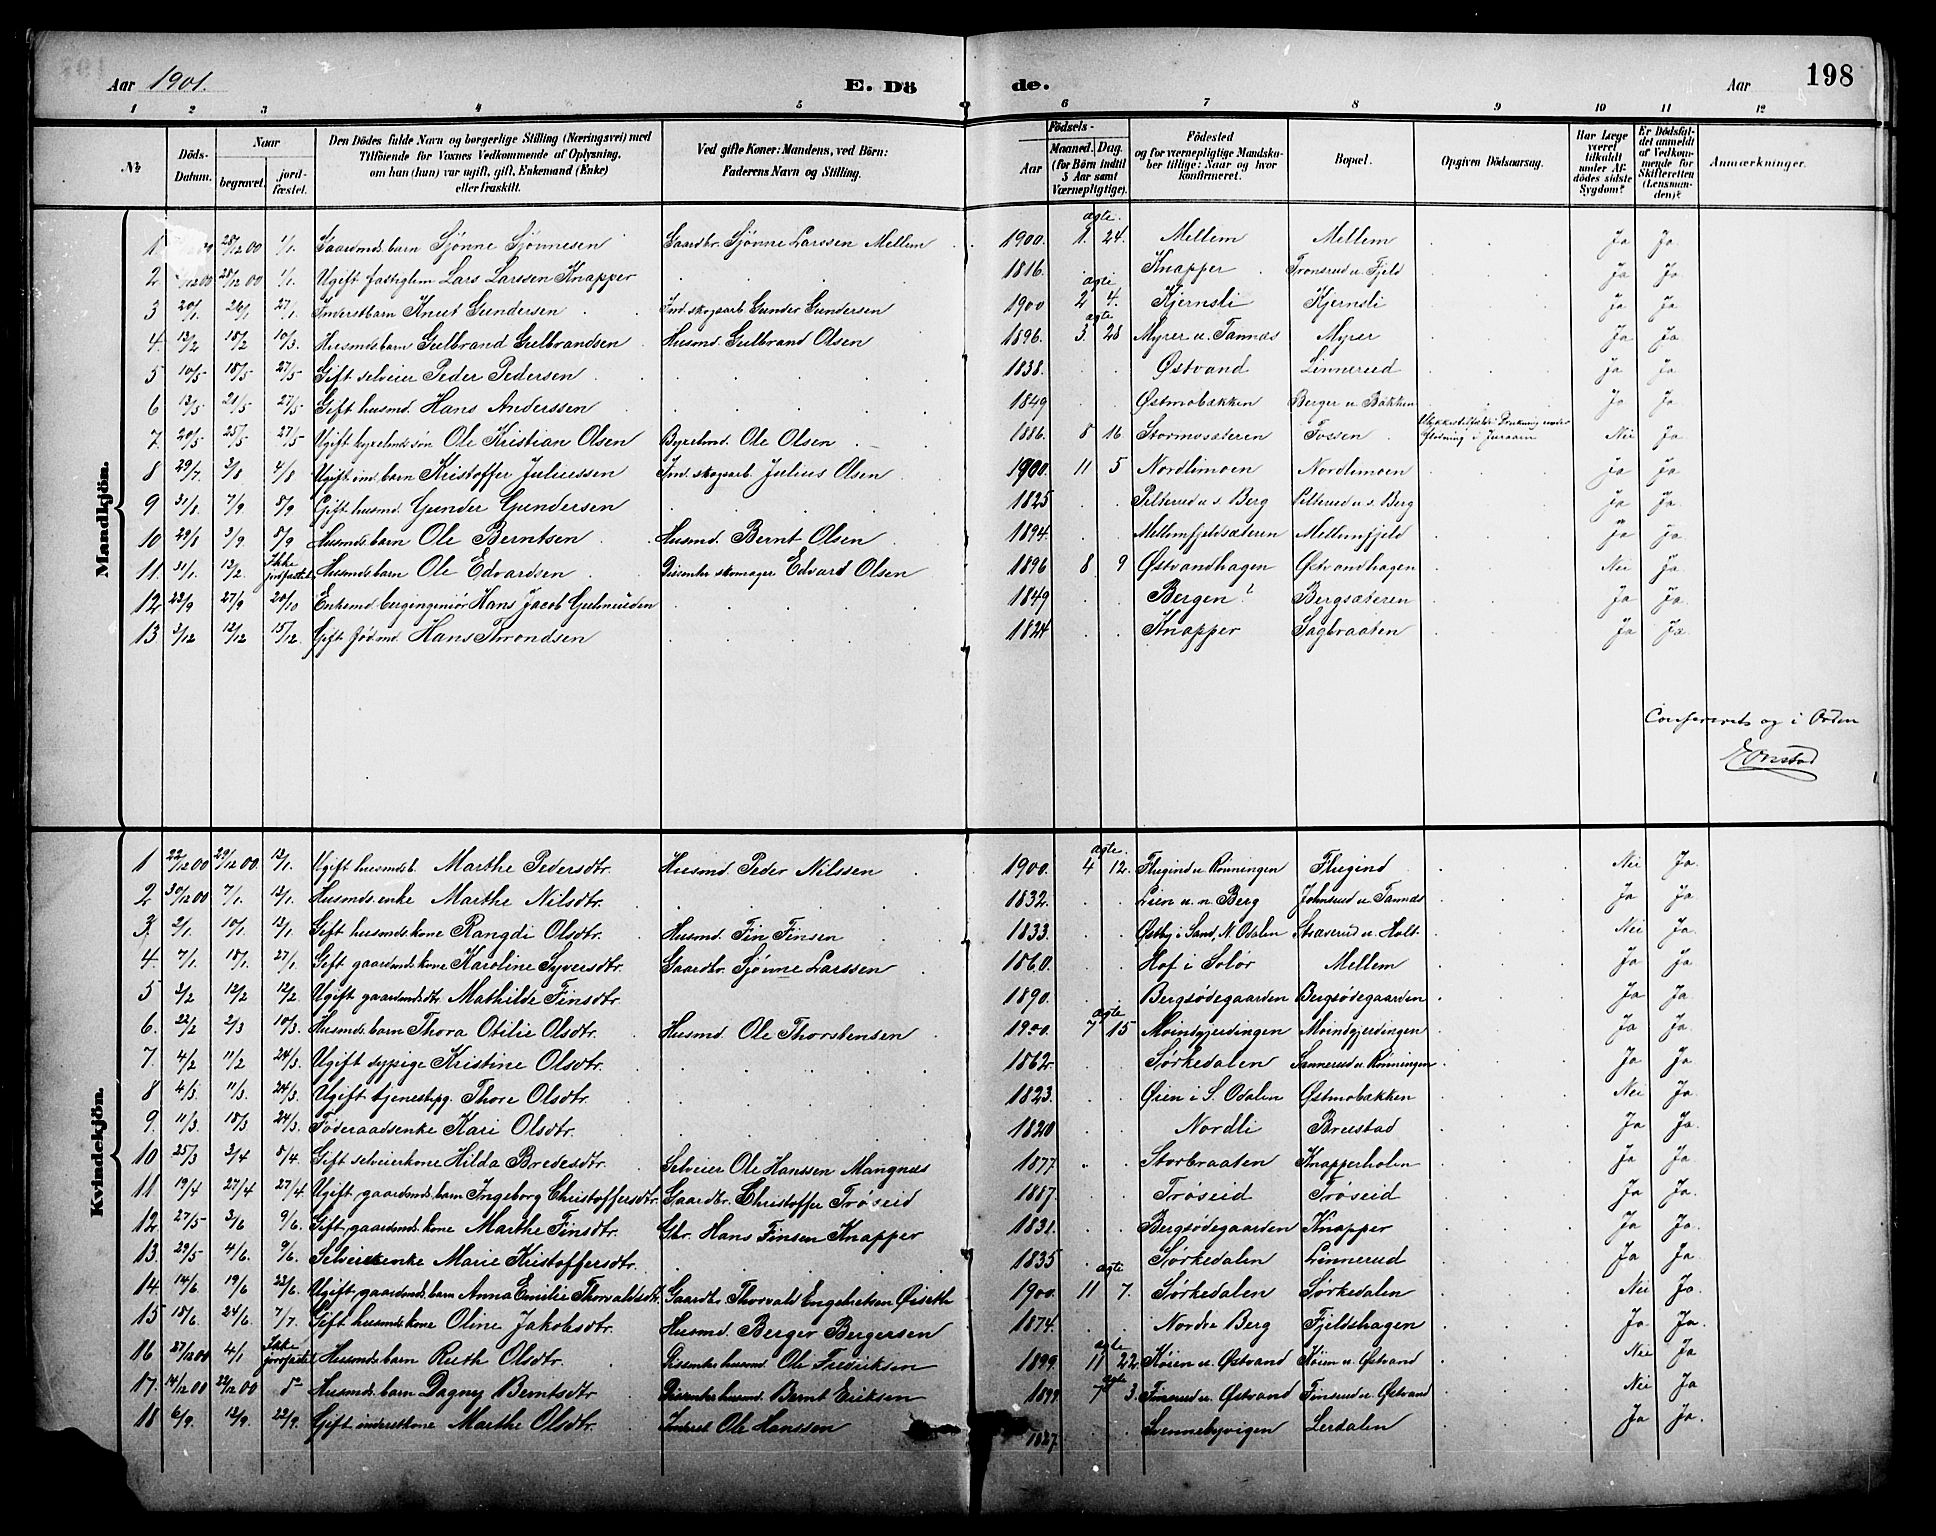 198
Aar 1901. E. Dö de. Aar
1 2 3 4 5 6 7 8 9 10 11 12
№ Döds-Datum. Naar begravet. jordfæstet. Den Dödes fulde Navn og borgerlige Stilling (Næringsvei) med Tilföiende for Voxnes Vedkommende af Oplysning, om han (hun) var ugift, gift, Enkemand (Enke) eller fraskilt. Ved gifte Koner: Mandens, ved Börn: Faderens Navn og Stilling. Födsels- Aar Maaned. Dag. (for Börn indtil 5 Aar samt Værnepligtige). Födested og for værnepligtige Mandskaber tillige: Naar og hvor konfirmeret. Bopæl. Opgiven Dödsaarsag. Har Læge været tilkaldt under Afdödes sidste Sygdom? Er Dödsfaldet anmeldt af Vedkommende for Skifteretten (Lensmanden)? Anmærkninger.
Mandkjön.
1. 28/12 00 1/1. Gaardmds. barn Sjønne Sjønnesen Gaardbr. Sjønne Larssen Mellem 1900. ægte. 1. 24. Mellem Mellem Ja Ja
2 /12 00 28/12 00 1/1. Ugift fattiglem Lars Larssen Knapper 1816. Knapper Tronsrud u. Fjeld Ja Ja
3 20/1 26/1 27/1. Inderstbarn Knut Gundersen Ind. skogsarb. Gunder Gundersen 1900 ægte 2 4. Kjernsli Kjernsli Ja Ja
4. 13/2 18/2 10/3. Husmds. barn Gulbrand Gulbrandsen Husmd. Gulbrand Olsen 1896. ægte 3. 28 Myrer u. Tannæs Myrer Ja Ja
5 10/5 18/5 27/5 Gift selveier Peder Pedersen 1838. Østvand Linnerud Ja Ja
6 13/5 21/5 27/5 Gift husmd. Hans Anderssen 1849 Østmobakken Berger u. Bakken Ja Ja
7. 20/5 25/5 27/5 Ugift Ole Kristian Olsen Ole Olsen 1886. 8 16 Stormosæteren Fossen Ulykkestilfælde: Drukning under fløtning i Juraaen Nei Ja
8 29/7 3/8 4/8 Ugift ind. barn Kristoffer Juliussen Ind. skogsarb. Julius Olsen 1900. 11 5 Nordlimoen Nordlimoen Ja Ja
9 31/8 7/9 8/9 Gift husmd. Gunder Gundersen 1825 Pelterud u. s. Berg Pelterud u. s. Berg Ja Ja
10 29/8 3/9. 8/9 Husmds. barn Ole Berntsen Husmd. Bernt Olsen 1894. Mellemfjeldsæteren Mellemfjeld Ja Ja
11. 31/1. 12/2 Ikke jordfæstet Husmds. barn Ole Edvardsen Dissenter skomager Edvard Olsen 1896 8 9 Østvandhagen Østvandhagen Nei Ja
12 23/9 27/9 20/10 Enkemd. bergingeniør Hans Jacob Gulmunden 1849 Bergen? Bergsæteren Ja Ja
13. 3/12 12/12 15/12 Gift fødmd. Hans Throndsen 1824 Knapper Sagbraaten Ja Ja
Confereret og i Orden
E Onstad
Kvindekjön.
1 22/12 00 29/12 00. 13/1. Ugift husmdsb. Marthe Pedersdtr. Husmd. Peder Nilssen 1900. ægte. 4 12. Flugind u. Rønningen Flugind Nei Ja
2 30/12 00 7/1. 13/1. Husmds. enke Marthe Nilsdtr. 1832. Lien u. n. Berg Johnsrud u. Tannæs Ja Ja
3. 2/1. 10/1. 13/1. Gift husmds. kone Rangdi Olsdtr. Husmd. Fin Finsen 1833. Østby i Sand, N. Odalen Stræserud u. Holt Nei Ja.
4. 7/1. 18/1. 27/1. Gift gaardmds. kone Karoline Syversdtr. Gaardbr. Sjønne Larssen 1860. Hof i Solør Mellem Ja Ja.
5 3/2 12/2 12/2 Ugift gaardmds. dtr. Mathilde Finsdtr. 1890. Bergsødegaarden Bergsødegaarden Ja Ja
6. 22/2 2/3 10/3. Husmds. barn Thora Otilie Olsdtr. Husmd. Ole Thorstensen 1900. ægte 7 15 Moindgjerdingen Moindgjerdingen Ja Ja.
7. 4/2 11/2 24/3 Ugift sypige Kristine Olsdtr. 1862. Sørkedalen Sannerud u. Rønningen Ja Ja
8 4/3 11/3. 24/3. Ugift tjenestepg. Thore Olsdtr. 1823. Øien i S. Odalen Østmobakken Nei Ja.
9. 11/3. 18/3 24/3. Føderaadsenke Kari Olsdtr. 1820 Nordli Breistad Ja Ja.
10 25/3 2/4 8/4. Gift selveierkone Hilda Bredesdtr. Selveier Ole Hanssen Mangnæs 1877. Storbraaten Knapperholen Ja Ja
11 19/4 27/4 27/4. Ugift gaardmds. barn Ingeborg Christoffersdtr. Gaardbr. Christoffer Trøseid 1887. Trøseid Trøseid Ja Ja.
12. 27/5 3/6 9/6. Gift gaardmds. kone Marthe Finsdtr. Gbr. Hans Finsen Knapper 1831. Bergsødegaarden Knapper Ja Ja.
13. 29/5 4/6. 9/6. Selveierenke Marie Kristoffersdtr. 1835 Sørkedalen Linnerud Ja Ja.
14. 14/6. 19/6 23/6. Ugift gaardmds. barn Anna Emilie Thorvaldsdtr. Gaardbr. Thorvald Engebretsen Øiseth 1900. ægte 11 7. Sørkedalen Sørkedalen Nei Ja.
15 18/6. 24/6 7/7. Gift husmds. kone Oline Jakobsdtr. Husmd. Berger Bergersen 1874. Nordre Berg Fjeldshagen Ja Ja.
16 27/12 00 4/1 Ikke jordfæstet Husmds. barn Ruth Olsdtr. Dissenter husmd. Ole Fredriksen 1899. ægte 11 22. Køien u. Østvand Køien u. Østvand Nei Ja
17. 14/12 00 22/12 00 do Husmds. barn Dagny Berntsdtr Dissenter husmd. Bernt Eriksen 1899 ægte 7 3. Finsrud u. Østvand Finsrud u. Østvand Nei Ja
18 6/9. 13/9. 22/9. Gift inderstkone Marthe Olsdtr. Inderst Ole Hanssen 1827. Svennebyvigen Lerdalen Ja Ja.